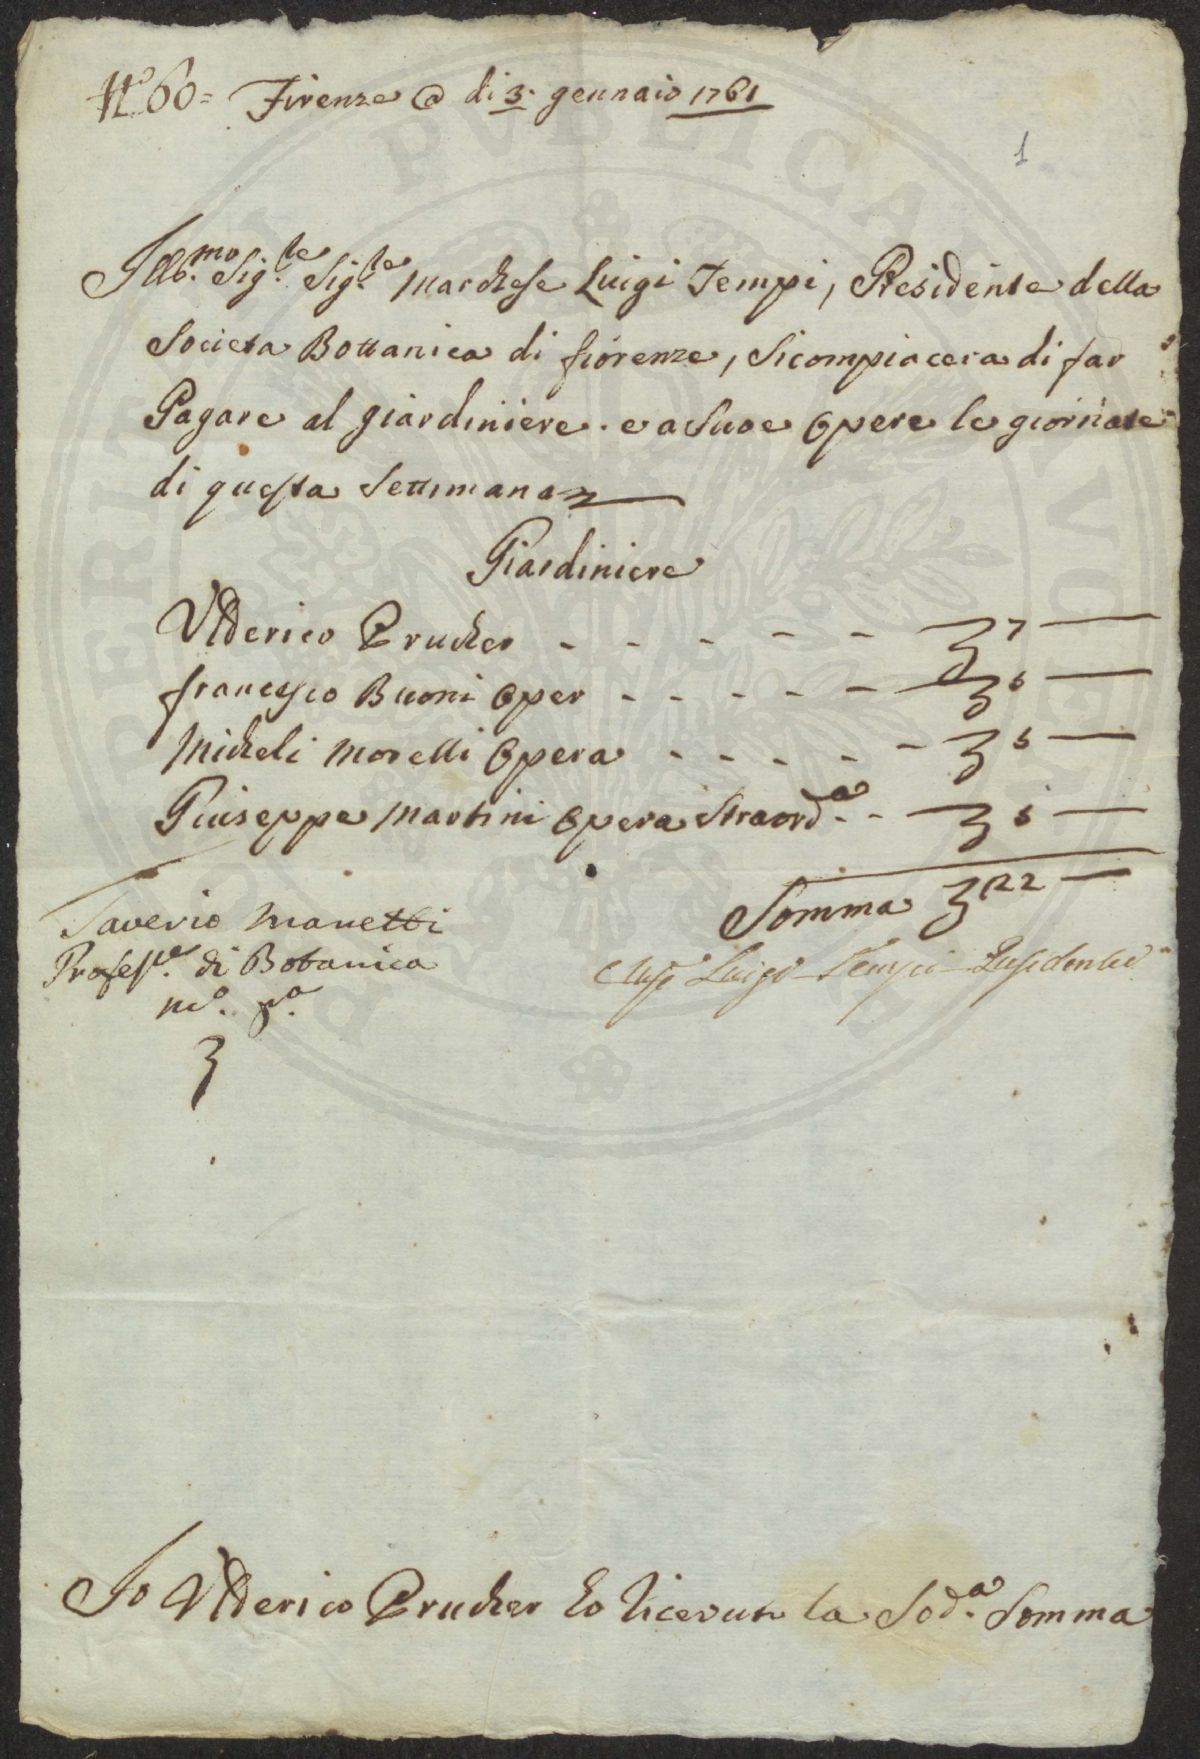 N.º 60= Firenze @ di 3. gennaio 1761
1
Ill.mo Sig.re Sig.re Marchese Luigi Tempi, Presidente della
Societa Bottanica di fiorenze, Sicompiacera di far
Pagare al giardiniere. e a Suoe Opere le giornate
di questa Settimana
Giardiniere
Ulderico Prucker - - - - - 7 —
francesco Buoni Oper - - - - - 5 —
Micheli Morelli Opera - - - - - 5 —
Giuseppe Martini Opera Straord.a - - 5 —
Somma 22 —
Saverio Manetti
Profess.e di Botanica
m.o p.a
Luigi Tempi Presidente
Io Ulderico Prucker Ho Riceuto la Sod.a Somma